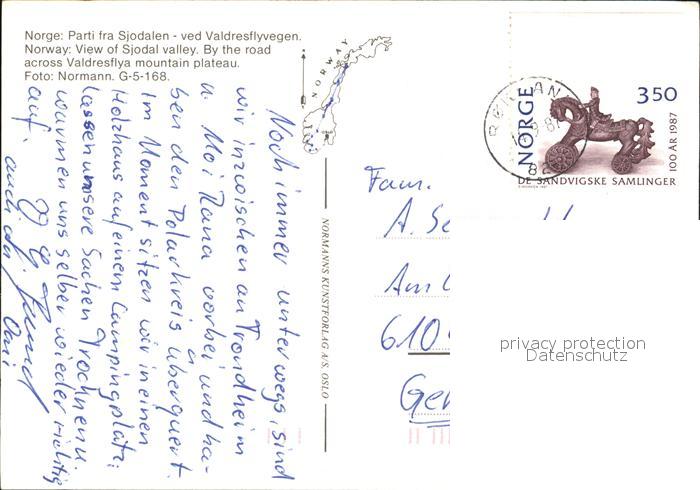 Norge: Parti fra Sjodalen - ved Valdresflyvegen.
Norway: View of Sjodal valley. By the road
across Valdresflya mountain plateau.
Foto: Normann. G-5-168.
NORWAY
Noch immer unterwegs, sind
wir inzwischen an Trondheim
u. Moi Rana vorbei und ha-
ben den Polarkreis überquert.
Im Moment sitzen wir in einem
Holzhaus auf einem Campingplatz,
lassen unsere Sachen trocknen u.
wärmen uns selber wieder richtig
auf.
NORMANNS KUNSTFORLAG A/S, OSLO
NORGE
350
100 ÅR 1987
DE SANDVIGSKE SAMLINGER
Fam.
A.
Am
610
Ger
privacy protection
Datenschutz